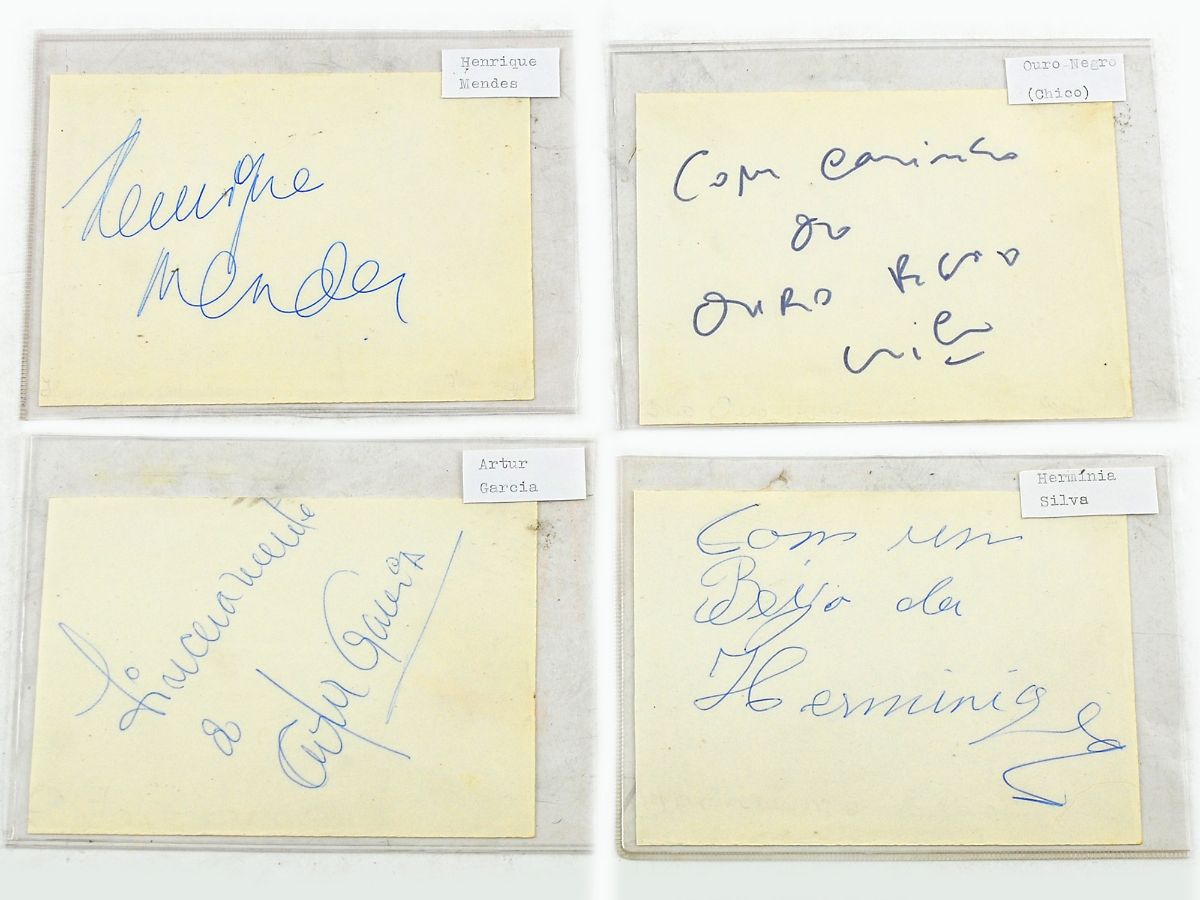 Henrique
Mendes
Henrique
Mendes
Ouro Negro
(Chico)
Com carinho
do
OURO NEGRO
Chico
Artur
Garcia
Sinceramente
Artur Garcia
Hermínia
Silva
Com um
Beijo da
Herminia